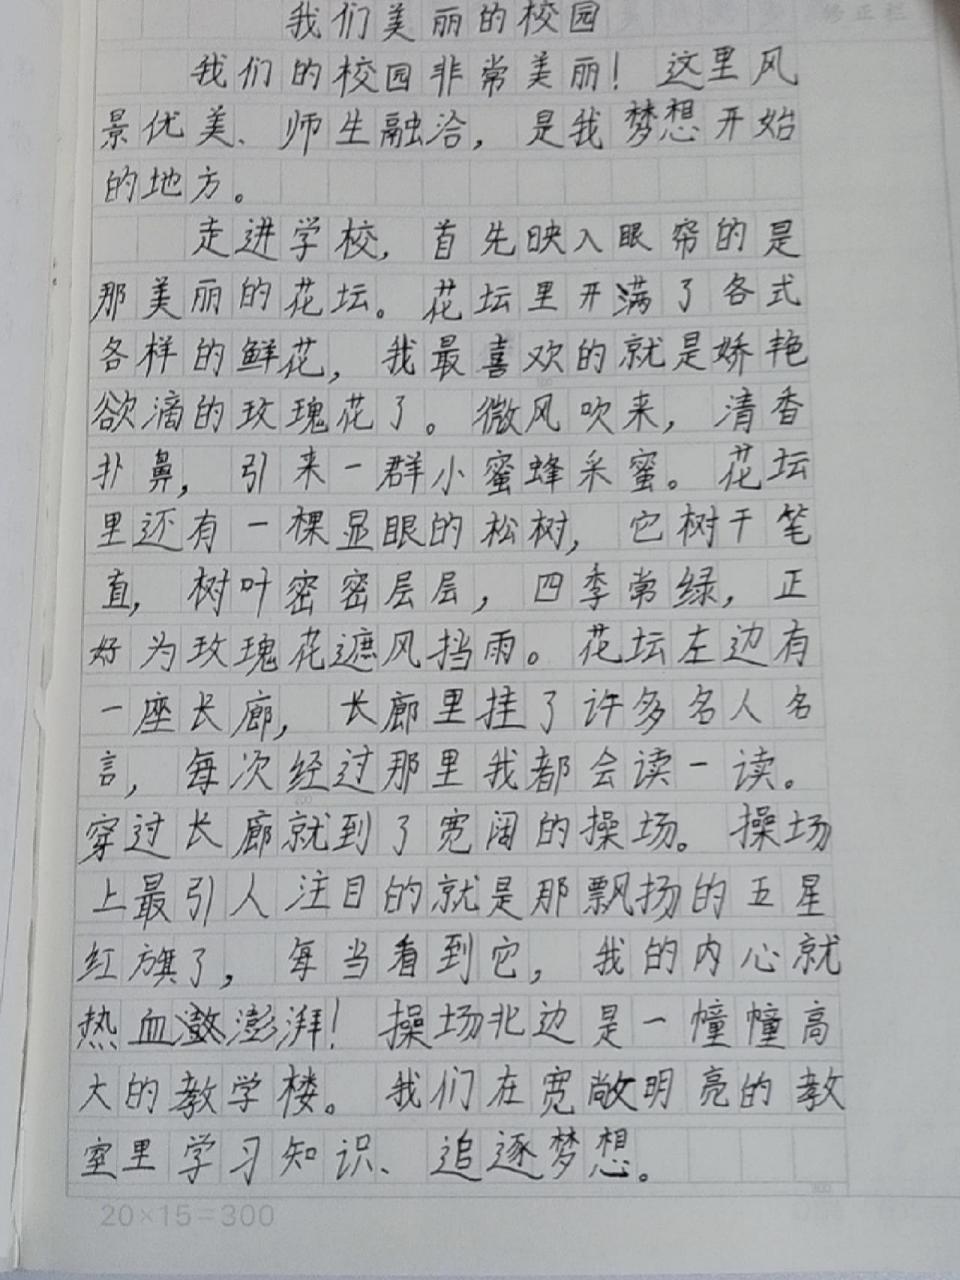 我们美丽的校园
我们的校园非常美丽！这里风
景优美、师生融洽，是我梦想开始
的地方。
走进学校，首先映入眼帘的是
那美丽的花坛。花坛里开满了各式
各样的鲜花，我最喜欢的就是娇艳
欲滴的玫瑰花了。微风吹来，清香
扑鼻，引来一群小蜜蜂采蜜。花坛
里还有一棵显眼的松树，它树干笔
直，树叶密密层层，四季常绿，正
好为玫瑰花遮风挡雨。花坛左边有
一座长廊，长廊里挂了许多名人名
言，每次经过那里我都会读一读。
穿过长廊就到了宽阔的操场。操场
上最引人注目的就是那飘扬的五星
红旗了，每当看到它，我的内心就
热血澎湃！操场北边是一幢幢高
大的教学楼。我们在宽敞明亮的教
室里学习知识、追逐梦想。
20×15=300